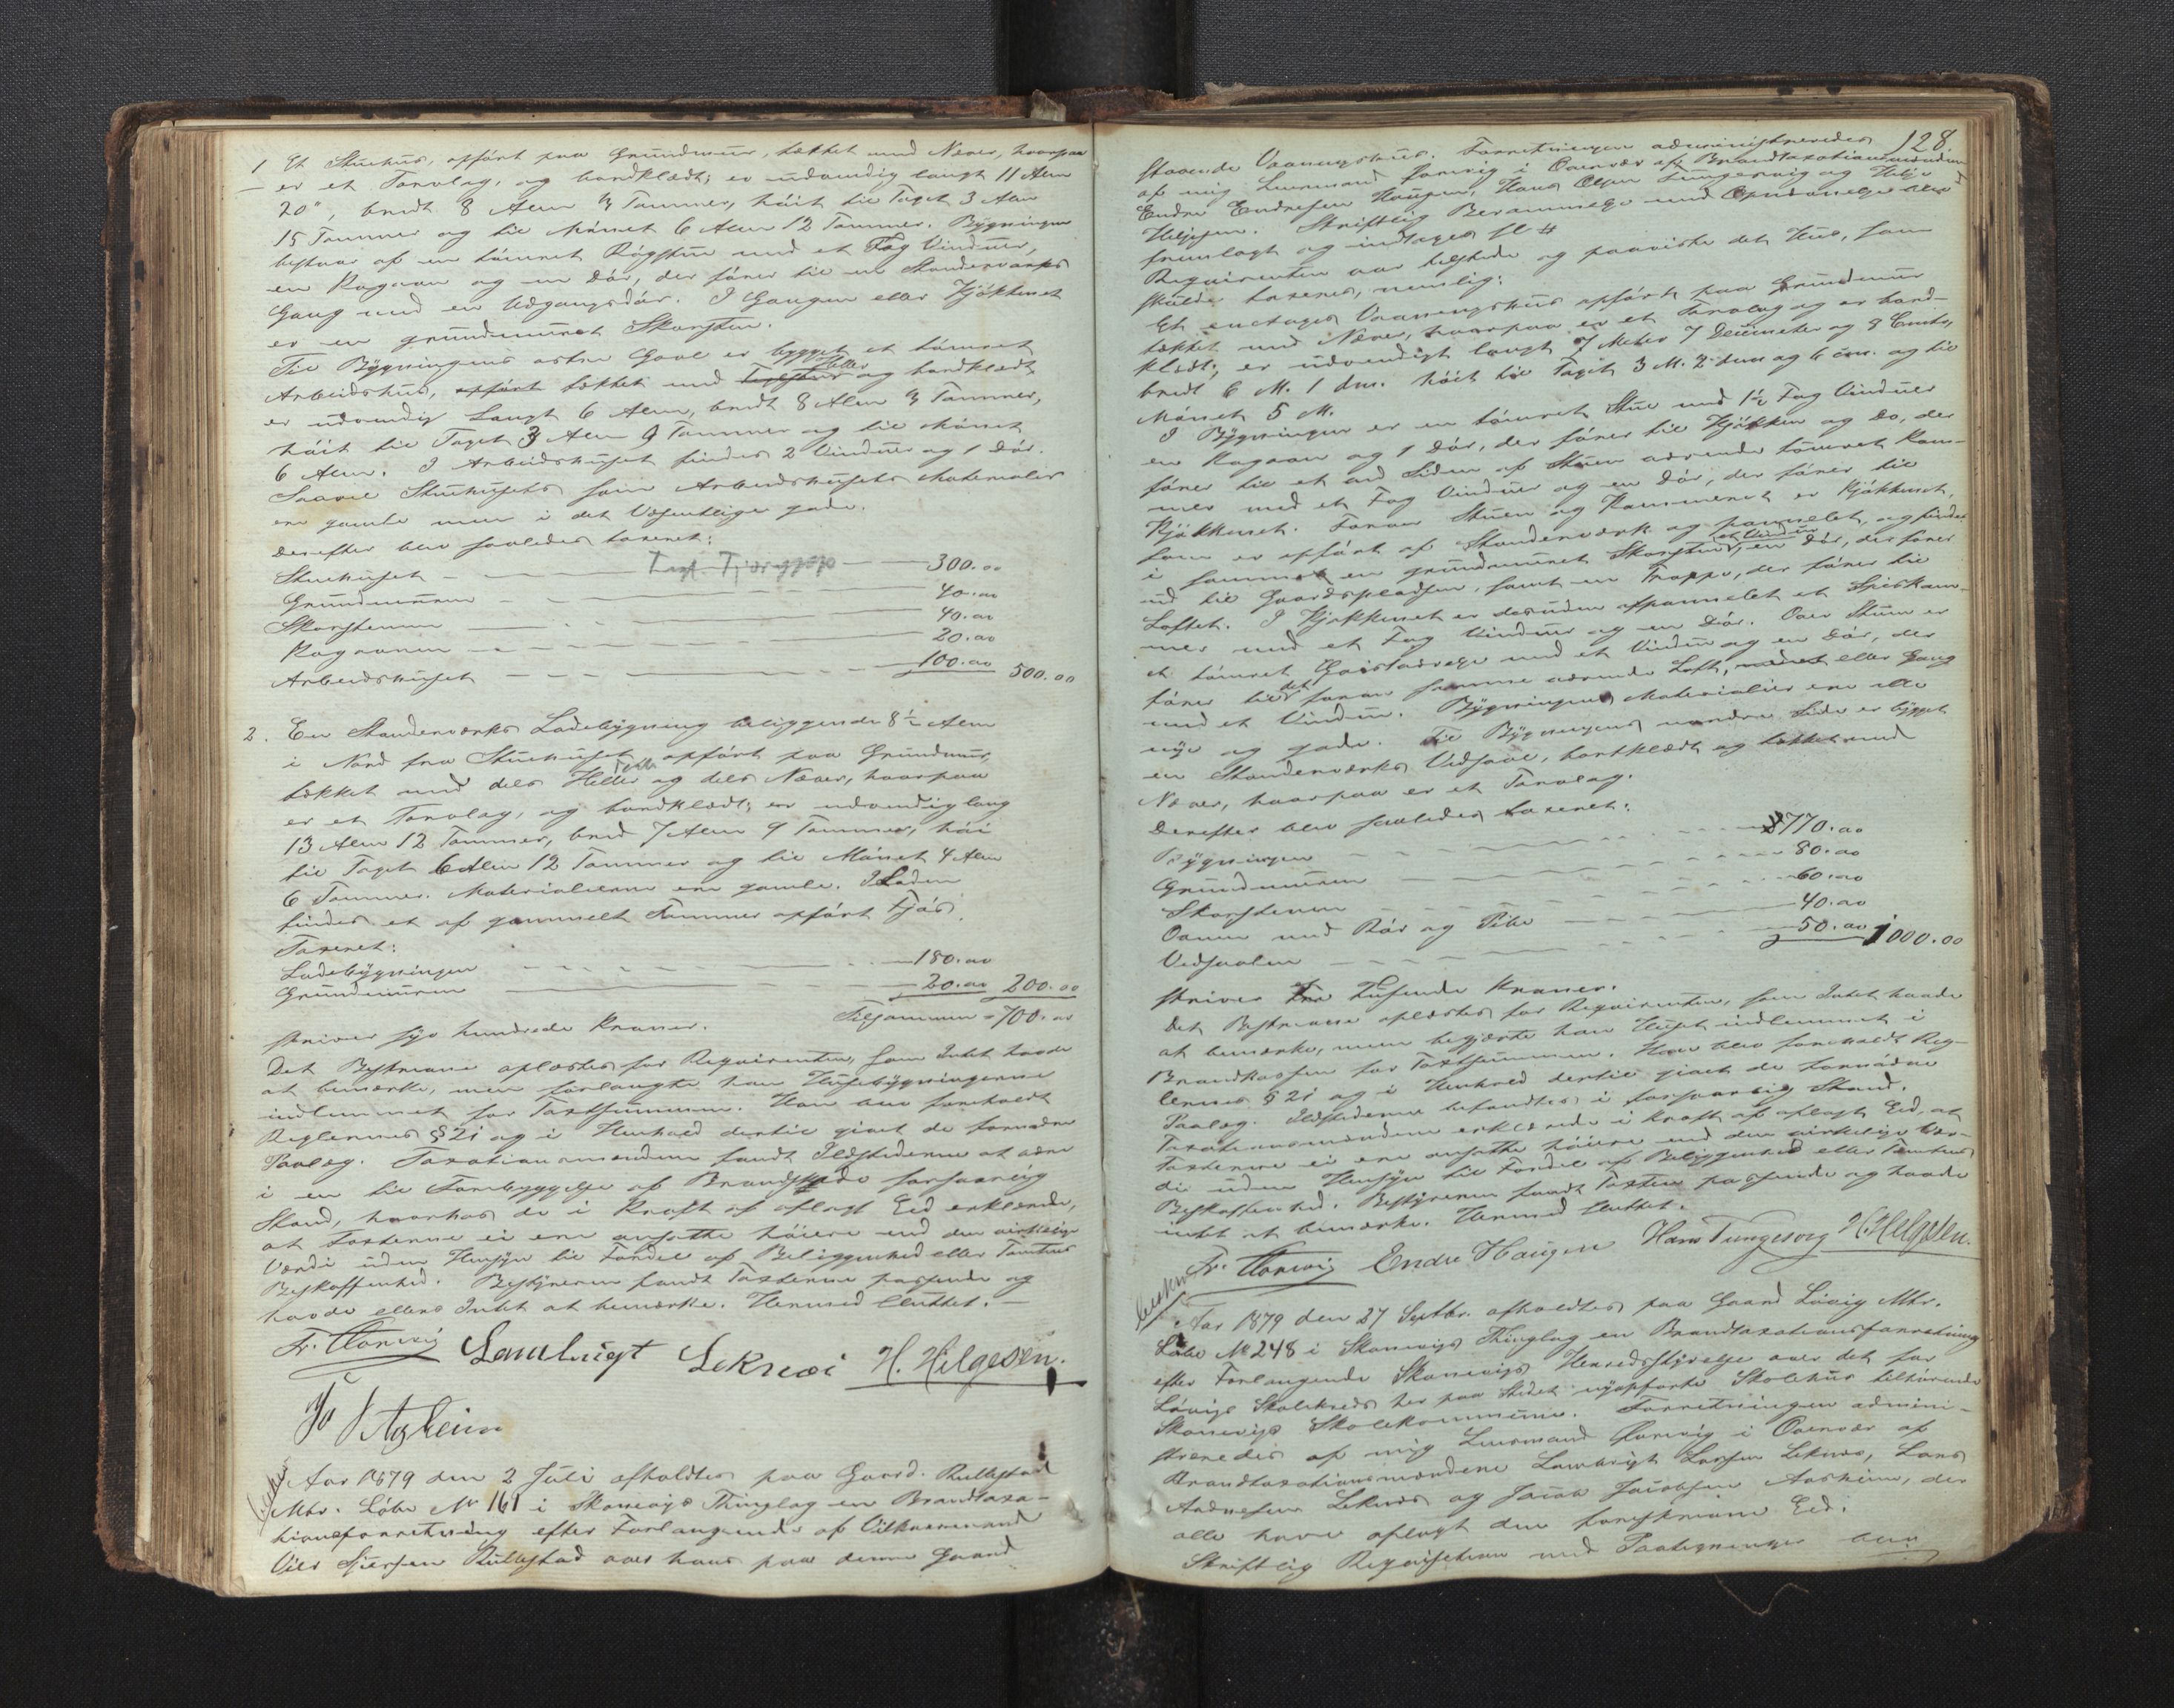 1 Et Stuehus, opført paa Grundmuur, tækket med Næver, hvorpaa
er et Torvlag, og bordklædt; er udvendig langt 11 Alen
20", bredt 8 Alen 3 Tommer, høit til Taget 3 Alen
15 Tommer og til Mønet 6 Alen 12 Tommer. Bygningen
bestaar af en tømret Røgstue med et Fag Vinduer,
en Kagovn og en Dør, der fører til en Standerværks
Gang med en Udgangsdør. I Gangen eller Kjøkkenet
er en grundmuret Skorsten.
Til Bygningens østre Gavl er bygget et tømret
Arbeidshus, opført tækket med Heller og bordklædt
er udvendig langt 6 Alen, bredt 8 Alen 3 Tommer,
høit til Taget 3 Alen 9 Tommer og til Mønet
6 Alen. I Arbeidshuset findes 2 Vinduer og 1 Dør.
Saavel Stuehusets som Arbeidshusets Materialier
ere gamle men i det Væsentlige gode.
Derefter blev saaledes taxeret:
Stuehuset 300.00
Grundmuren 40.00
Skorstenen 40.00
Kagovnen 20.00
Arbeidshuset 100.00 500.00
2. En Standerværks Ladebygning beliggende 8½ Alen
i Nord fra Stuehuset, opført paa Grundmuur,
tækket med dels Heller og dels Næver, hvorpaa
er et Torvlag, og bordklædt; er udvendig lang
13 Alen 12 Tommer, bred 7 Alen 9 Tommer, høi
til Taget 6 Alen 12 Tommer og til Mønet 4 Alen
6 Tommer. Materialierne ere gamle. I Laden
findes et af gammelt Tømmer opført Fjøs.
Taxeret:
Ladebygningen 180.00
Grundmuren 20.00 200.00
Tilsammen = 700.00
skriver syv hundrede Kroner.
Det Beskrevne oplæstes for Requirenten, som Intet havde
at bemærke, men forlangte han Husebygningerne
indlemmet for Taxtsummen. Han blev foreholdt
Reglernes § 21 og i Henhold dertil givet de fornødne
Paalæg. Taxationsmændene fandt Ildstederne at være
i en til Forebyggelse af Brandskade forsvarlig
Stand, hvorhos de i Kraft af aflagt Eed erklærede,
at Taxterne ei ere ansatte høiere end den virkelige
Værdi uden Hensyn til Fordel af Beliggenhed eller Tomtens
Beskaffenhed. Bestyreren fandt Taxterne passende og
havde ellers Intet at bemærke. Hermed sluttet. —
Lambrigt Leknæs H. Helgesen.
Aar 1879 den 2 Juli afholdtes paa Gaard. Rullestad
Mtr. Løbe No 161 i Skonevigs Thinglag en Brandtaxa-
tionsforretning efter Forlangende af
Rullestad over hans paa denne Gaard
128.
staaende Vaaningshus. Forretningen administreredes
af mig Lensmand i Overvær af Brandtaxationsmændene
Endre Endresen Haugen, Hans Olsen Tungesvig og Helje
Heljesen. Skriftlig Berammelse med Opnævnelse blev
fremlagt og indtages sl #
Requirenten var tilstede og paaviste det Huus, som
skulde taxeres, nemlig:
Et enetages Vaaningshus opført paa Grundmuur
tækket med Næver, hvorpaa er et Torvlag og er bord-
klædt; er udvendigt langt 7 Meter 7 Decimeter og 9 Centr,
bredt 6 M. 1 dm. høit til Taget 3 M. 2 dm og 6 cm. og til
Mønet 5 M.
I Bygningen er en tømret Stue med 1½ Fag Vinduer
en Kagovn og 1 Dør, der fører til Kjøkken og Do, der
fører til et ved Siden af Stuen værende tømret Kam-
mer med et Fag Vinduer og en Dør, der fører til
Kjøkkenet. Foran Stuen og Kammeret er Kjøkkenet,
som er opført af Standerværk og pannelet, og findes
i samme en grundmuret Skorsten, et Vindue, en Dør, der fører
ud til Gaardspladsen, samt en Trappe, der fører til
Loftet. I Kjøkkenet er desuden afpannelet et Spiskam-
mer med et Fag Vinduer og en Dør. Over Stuen er
et tømret med et Vindue og en Dør, der
fører til det foran samme værende Loft, eller Gang
med et Vindue. Bygningens Materialier ere alle
nye og gode. Til Bygningens nordre Side er bygget
en Standerværks Vedsval, bordklædt og tækket med
Næver, hvorpaa er et Torvlag.
Derefter blev saaledes taxeret:
Bygningen 770.00
Grundmuren 80.00
Skorstenen 60.00
Ovnen med Rør og Pibe 40.00
Vedsvalen 50.00 1000.00
skriver Et Tusende Kroner.
Det Beskrevne oplæstes for Requirenten, som Intet havde
at bemærke, men begjærte han Huset indlemmet i
Brandkassen for Taxtsummen. Han blev foreholdt Reg-
lernes § 21 og i Henhold dertil givet de fornødne
Paalæg. Ildstederne befandtes i forsvarlig Stand.
Taxationsmændene erklærede i Kraft af aflagt Eed, at
Taxterne ei ere ansatte høiere end den virkelige Vær-
di uden Hensyn til Fordel af Beliggenhed eller Tomtens
Beskaffenhed. Bestyreren fandt Taxten passende og havde
intet at bemærke. Hermed sluttet.
Endre Haugen Hans Tungesvig H. Helgesen.
Aar 1879 den 27 Septbr. afholdtes paa Gaard Løvig Mtr.
Løbe No 248 i Skonevigs Thinglag en Brandtaxationsforretning
efter Forlangende Skonevigs Herredsstyrelse over det for
Løvigs Skolekreds her paa Stedet nyopførte Skolehus tilhørende
Skonevigs Skolekommune. Forretningen admini-
streredes af mig Lensmand i Overvær af
Brandtaxationsmændene Lambrigt Larsen Leknæs, Lars
Andresen Leknæs og Jacob Jacobsen, der
alle have aflagt den foreskrevne Eed.
Skriftlig Requisition med Paategninger blev